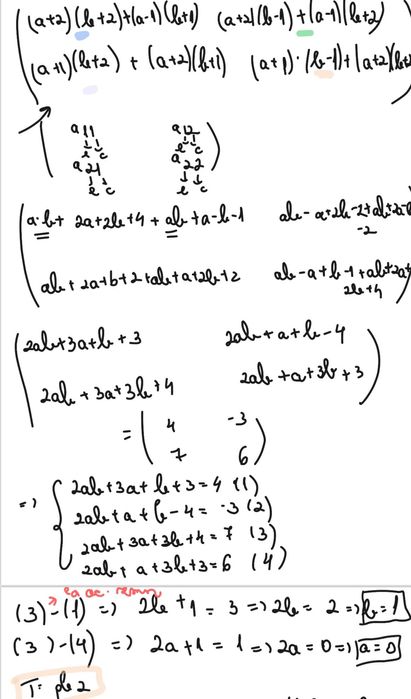 (a+2)(b+2)+(a-1)(b+1) (a+2)(b-1)+(a-1)(b+2)
(a+1)(b+2) + (a+2)(b+1) (a+1)·(b-1)+(a+2)(b+
a11 a12
b c b c
a21 a22
b c b c
a·b+ 2a+2b+4 + ab+a-b-1 ab-a+2b-2+ab+2a-b
-2
ab+2a+b+2+ab+a+2b+2 ab-a+b-1+ab+2a+
2b+4
2ab+3a+b+3 2ab+a+b-4
2ab+3a+3b+4 2ab+a+3b+3
= 4 -3
7 6
=> 2ab+3a+b+3=4 (1)
2ab+a+b-4= -3 (2)
2ab+3a+3b+4=7 (3)
2ab+a+3b+3=6 (4)
(3)-(1) => 2b+1=3 => 2b=2 => b=1
(3)-(4) => 2a+1=1 => 2a=0 => a=0